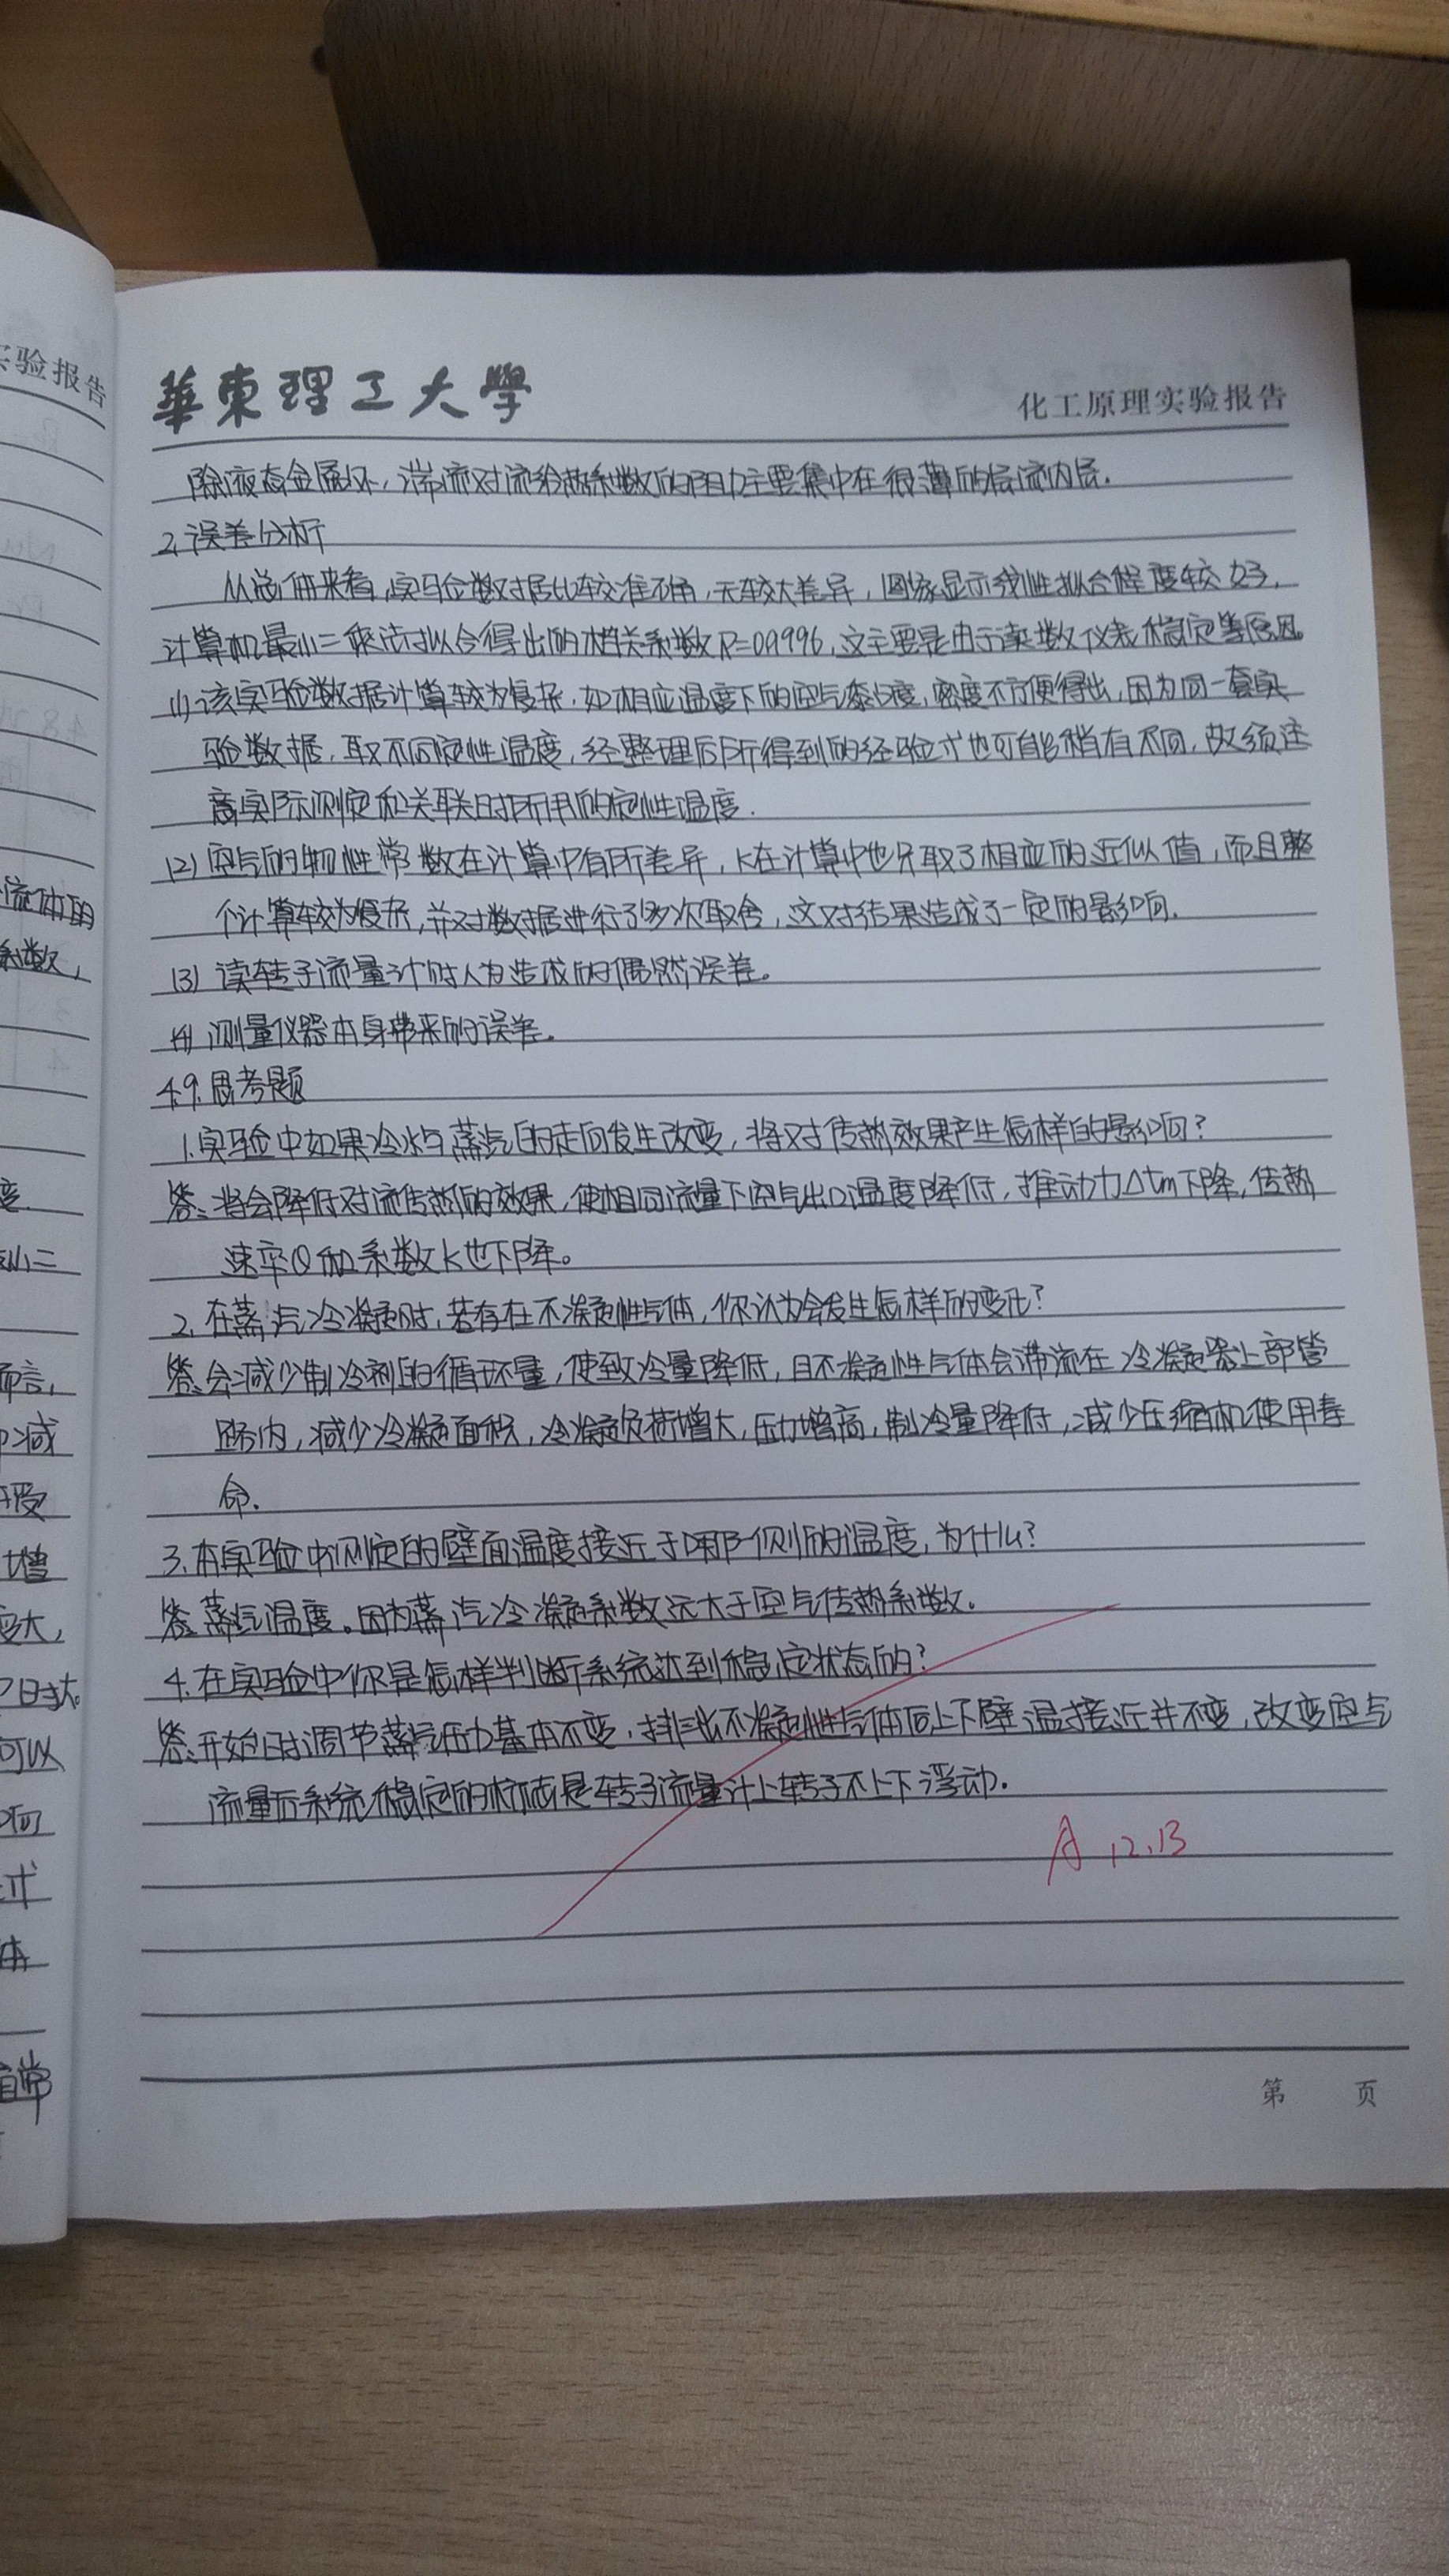 实验报告
華東理工大學
化工原理实验报告
除液态金属外，湍流对流给热系数的阻力主要集中在很薄的层流内层.
2.误差分析
从总体来看,实验数据比较准确,无较大差异,图象显示线性拟合程度较好,
计算机最小二乘法拟合得出的相关系数R=0.9996,这主要是由于读数仪表稳定等原因.
(1)该实验数据计算较为复杂,如相应温度下的空气黏度,密度不方便得出,因为同一套实
验数据,取不同定性温度,经整理后所得到的经验式也可能稍有不同,故须注
意实际测定和关联时所用的定性温度.
(2)空气的物性常数在计算中有所差异,k在计算中也只取了相应的近似值,而且整
个计算较为复杂,并对数据进行了多次取舍,这对结果造成了一定的影响.
(3)读转子流量计时人为造成的偶然误差。
(4)测量仪器本身带来的误差.
4.9.思考题
1.实验中如果冷水与蒸汽的走向发生改变,将对传热效果产生怎样的影响?
答:将会降低对流传热的效果,使相同流量下空气出口温度降低,推动力Δtm下降,传热
速率Q和系数K也下降。
2.在蒸汽冷凝时,若存在不凝性气体,你认为会发生怎样的变化?
答:会减少制冷剂的循环量,使致冷量降低,且不凝性气体会滞流在冷凝器上部管
路内,减少冷凝面积,冷凝负荷增大,压力增高,制冷量降低,减少压缩机使用寿
命.
3.本实验中测定的壁面温度接近于哪一侧的温度,为什么?
答:蒸汽温度。因为蒸汽冷凝系数远大于空气传热系数.
4.在实验中你是怎样判断系统达到稳定状态的?
答:开始时调节蒸气压力基本不变,排出不凝性气体后上下壁温接近并不变,改变空气
流量后系统稳定的标志是转子流量计上转子不上下浮动.
A 12.13
第 页